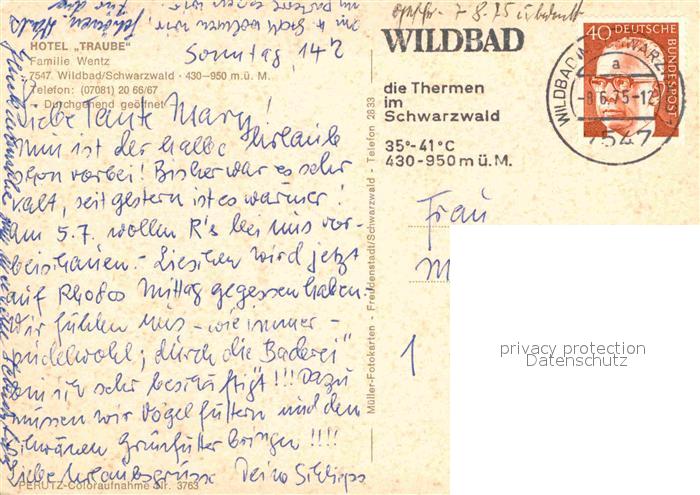 HOTEL „TRAUBE"
Familie Wentz
7547 Wildbad/Schwarzwald · 430–950 m ü. M.
Telefon: (07081) 20 66/67
• Durchgehend geöffnet
Sonntag, 14h
Liebe Tante Mary!
Nun ist der halbe Urlaub
schon vorbei! Bisher war es sehr
kalt, seit gestern ist es wärmer!
Am 5.7. wollen R's bei uns vor-
beischauen. – Lieschen wird jetzt
auf Rhodos Mittag gegessen haben.
Wir fühlen uns – wie immer –
pudelwohl; durch die „Baderei"
sind wir sehr beschäftigt!!! Dazu
müssen wir Vögel füttern und den
Schwänen Grünfutter bringen!!!!
Liebe Urlaubsgrüsse Deine
PERUTZ-Coloraufnahme Nr. 3763
Müller-Fotokarten - Freudenstadt/Schwarzwald - Telefon 2833
7 8.75
WILDBAD
die Thermen
im
Schwarzwald
35°-41°C
430-950m ü. M.
WILDBAD IM SCHWARZW
a
-8.6.75-12
7547
40
DEUTSCHE BUNDESPOST
Frau
M
1
privacy protection
Datenschutz